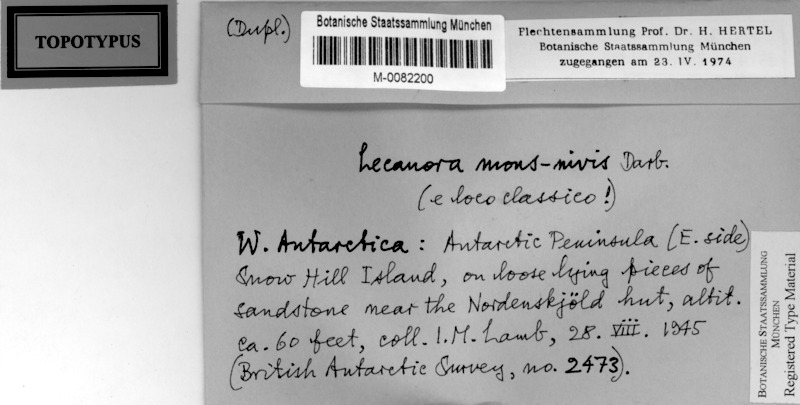 TOPOTYPUS
(Dupl.)
Botanische Staatssammlung München
M-0082200
Flechtensammlung Prof. Dr. H. HERTEL
Botanische Staatssammlung München
zugegangen am 23. IV. 1974
Lecanora mons-nivis Darb.
(e loco classico!)
W. Antarctica: Antarctic Peninsula (E. side)
Snow Hill Island, on loose lying pieces of
sandstone near the Nordenskjöld hut, altit.
ca. 60 feet, coll. I.M. Lamb, 28. VIII. 1945
(British Antarctic Survey, no. 2473).
BOTANISCHE STAATSSAMMLUNG
MÜNCHEN
Registered Type Material